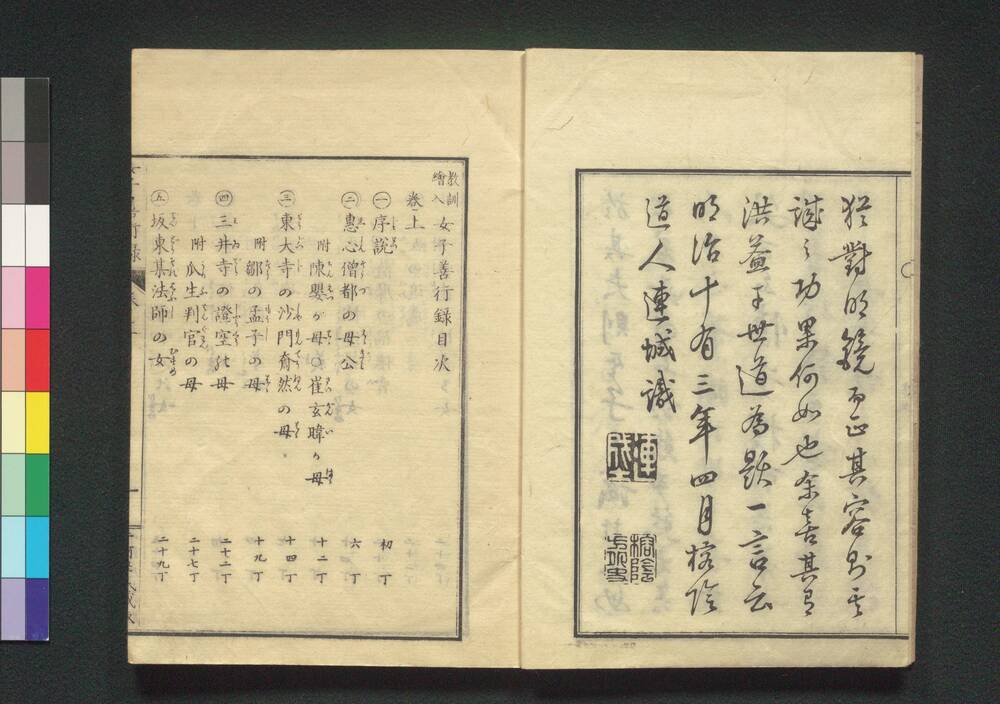 猶對明鏡而正其容則其
誡之功果何如也余喜其有
洪益于世道為題一言云
明治十有三年四月榕陰
道人連城識
連城
榕陰
教訓
繪入
女子善行録目次
巻上
㊀序説 初丁
㊁惠心僧都の母公 六丁
附陳嬰が母〇崔玄暐が母 十二丁
㊂東大寺の沙門奝然の母 十四丁
附鄒の孟子の母 十九丁
㊃三井寺の證空の母 二十二丁
附瓜生判官の母 二十七丁
㊄坂東某法師の女 二十九丁